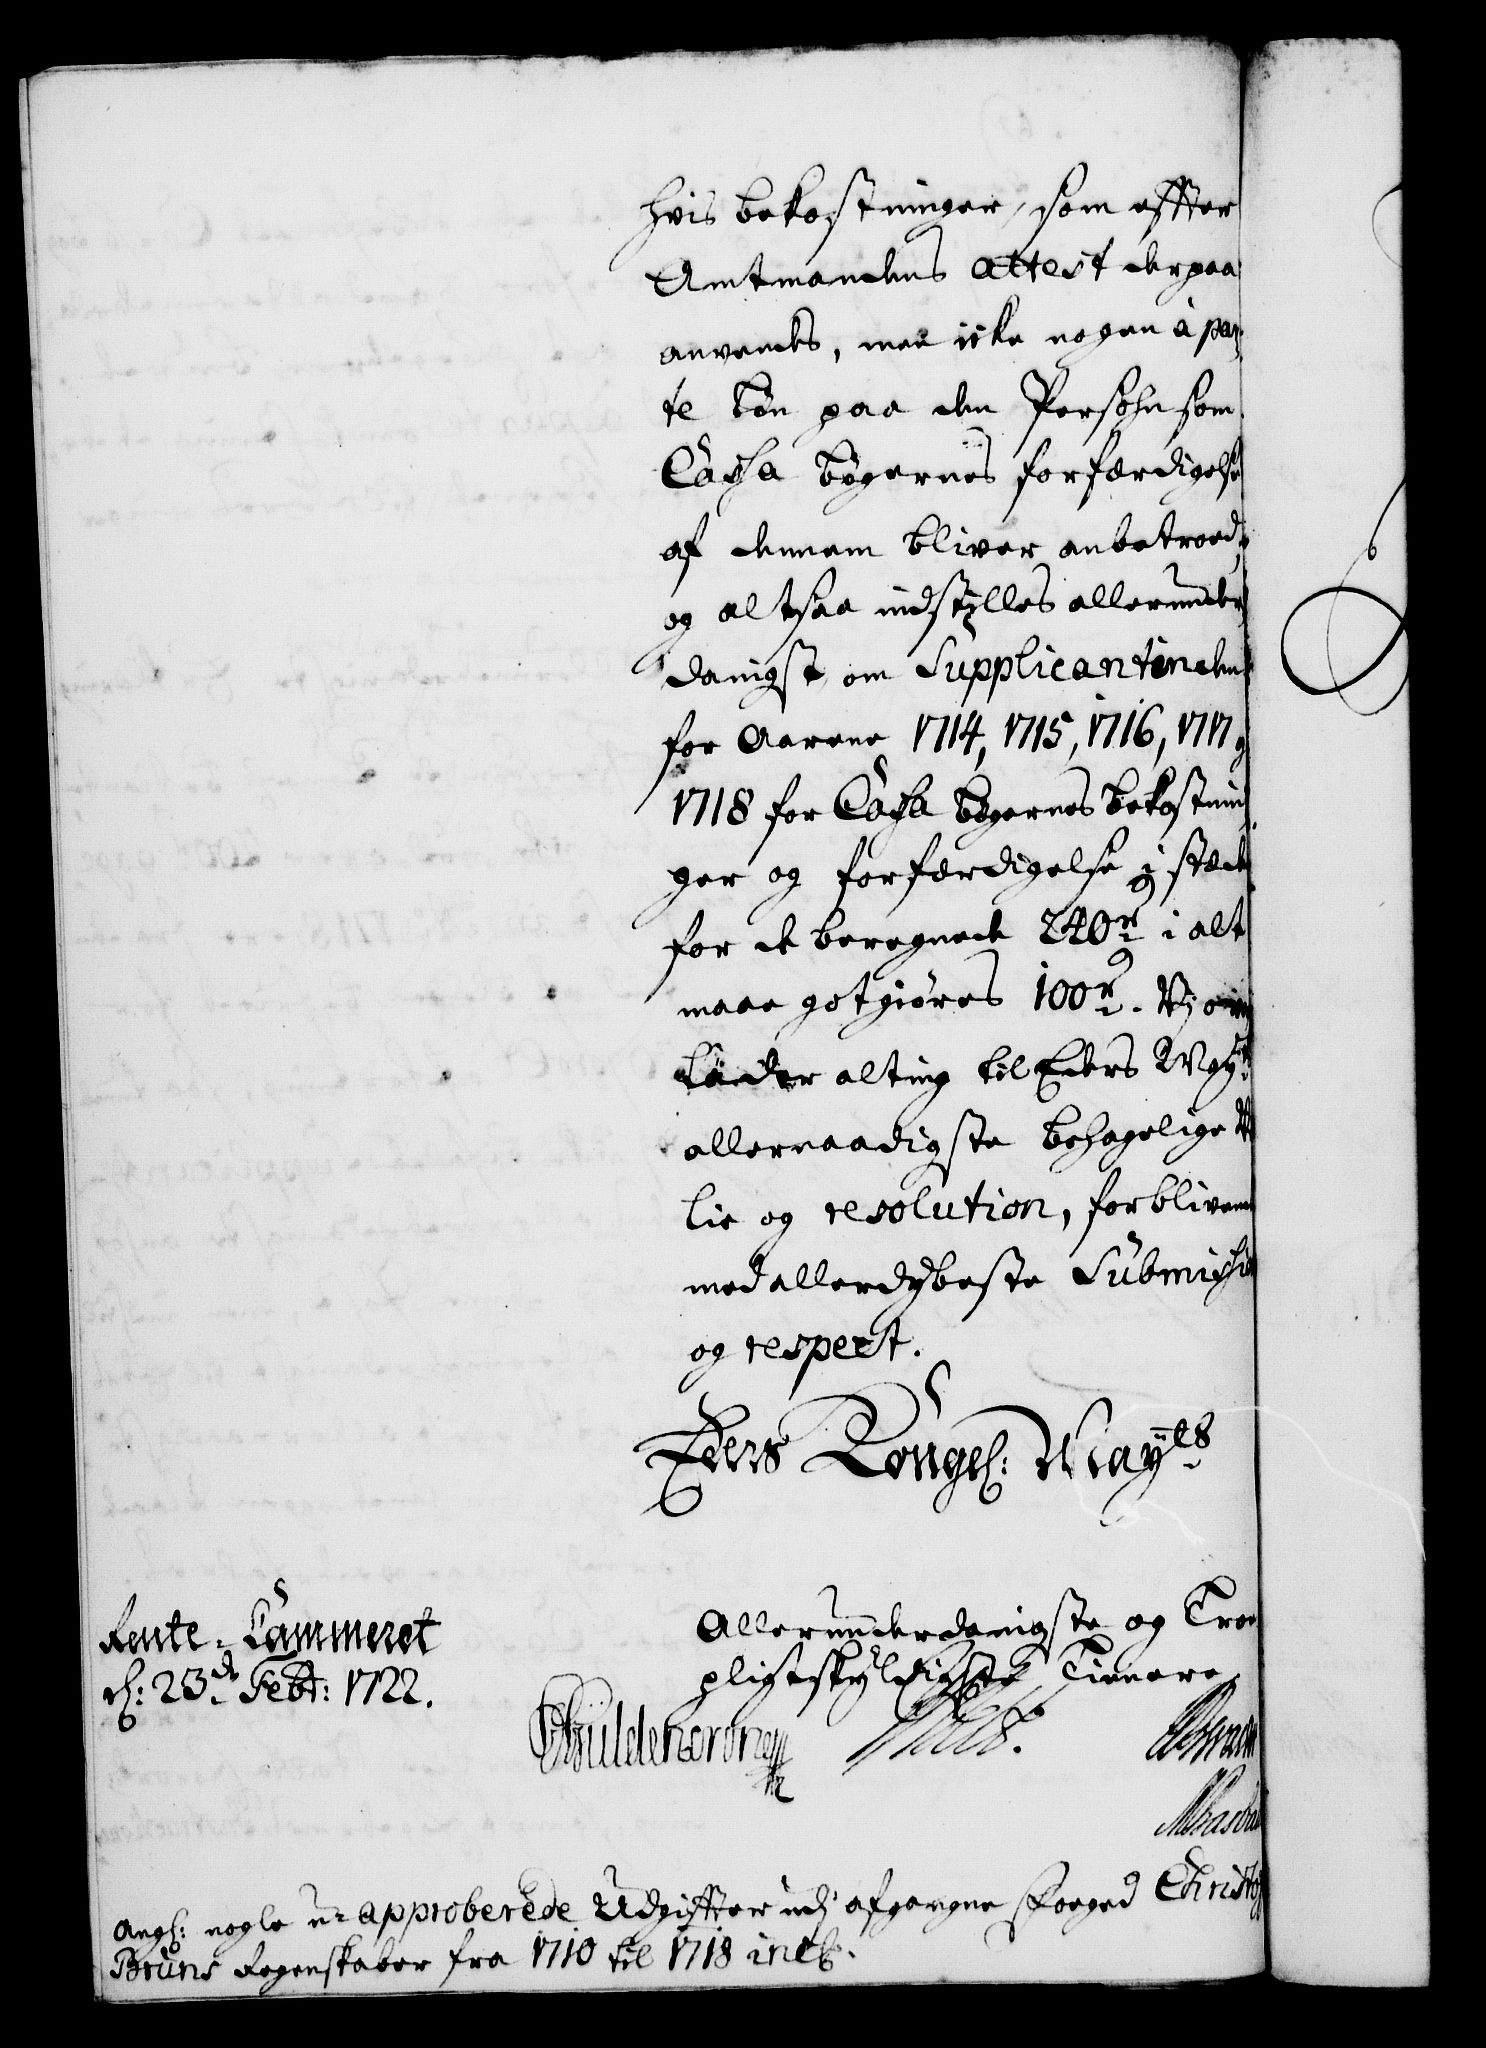 hvis bekostninger, som effter
Amtmandens attest derpaa
anvendes, mee icke nogen à par-
te løn paa den Persohn som
Cassa bøgernes forfærdigelse
af dennem bliver anbetroed,
og altsaa indstilles allerunder
danigst, om Supplicantinden
for Aarene 1714, 1715, 1716, 1717 og
1718 for Cassa bøgernes bekostnin
ger og forfærdigelse i stæde
for de beregnede 240 r i alt
maae gotgiøres 100 r. Vj
alting til Eders May
allernaadigste behagelige
lie og resolution, forblivend
med allerdybeste Submissio
og respect.
Eders Kongel: Mayts
Allerunderdanigste og Troe
pligtskyldigste Tienere
Rente-Cammeret
d: 23de Febr: 1722.
Gÿldencrone
Angl: nogle u-approberede Udgiffter udj afgangne Foged Christ
Bruns Regenskaber fra 1710 til 1718 incl: